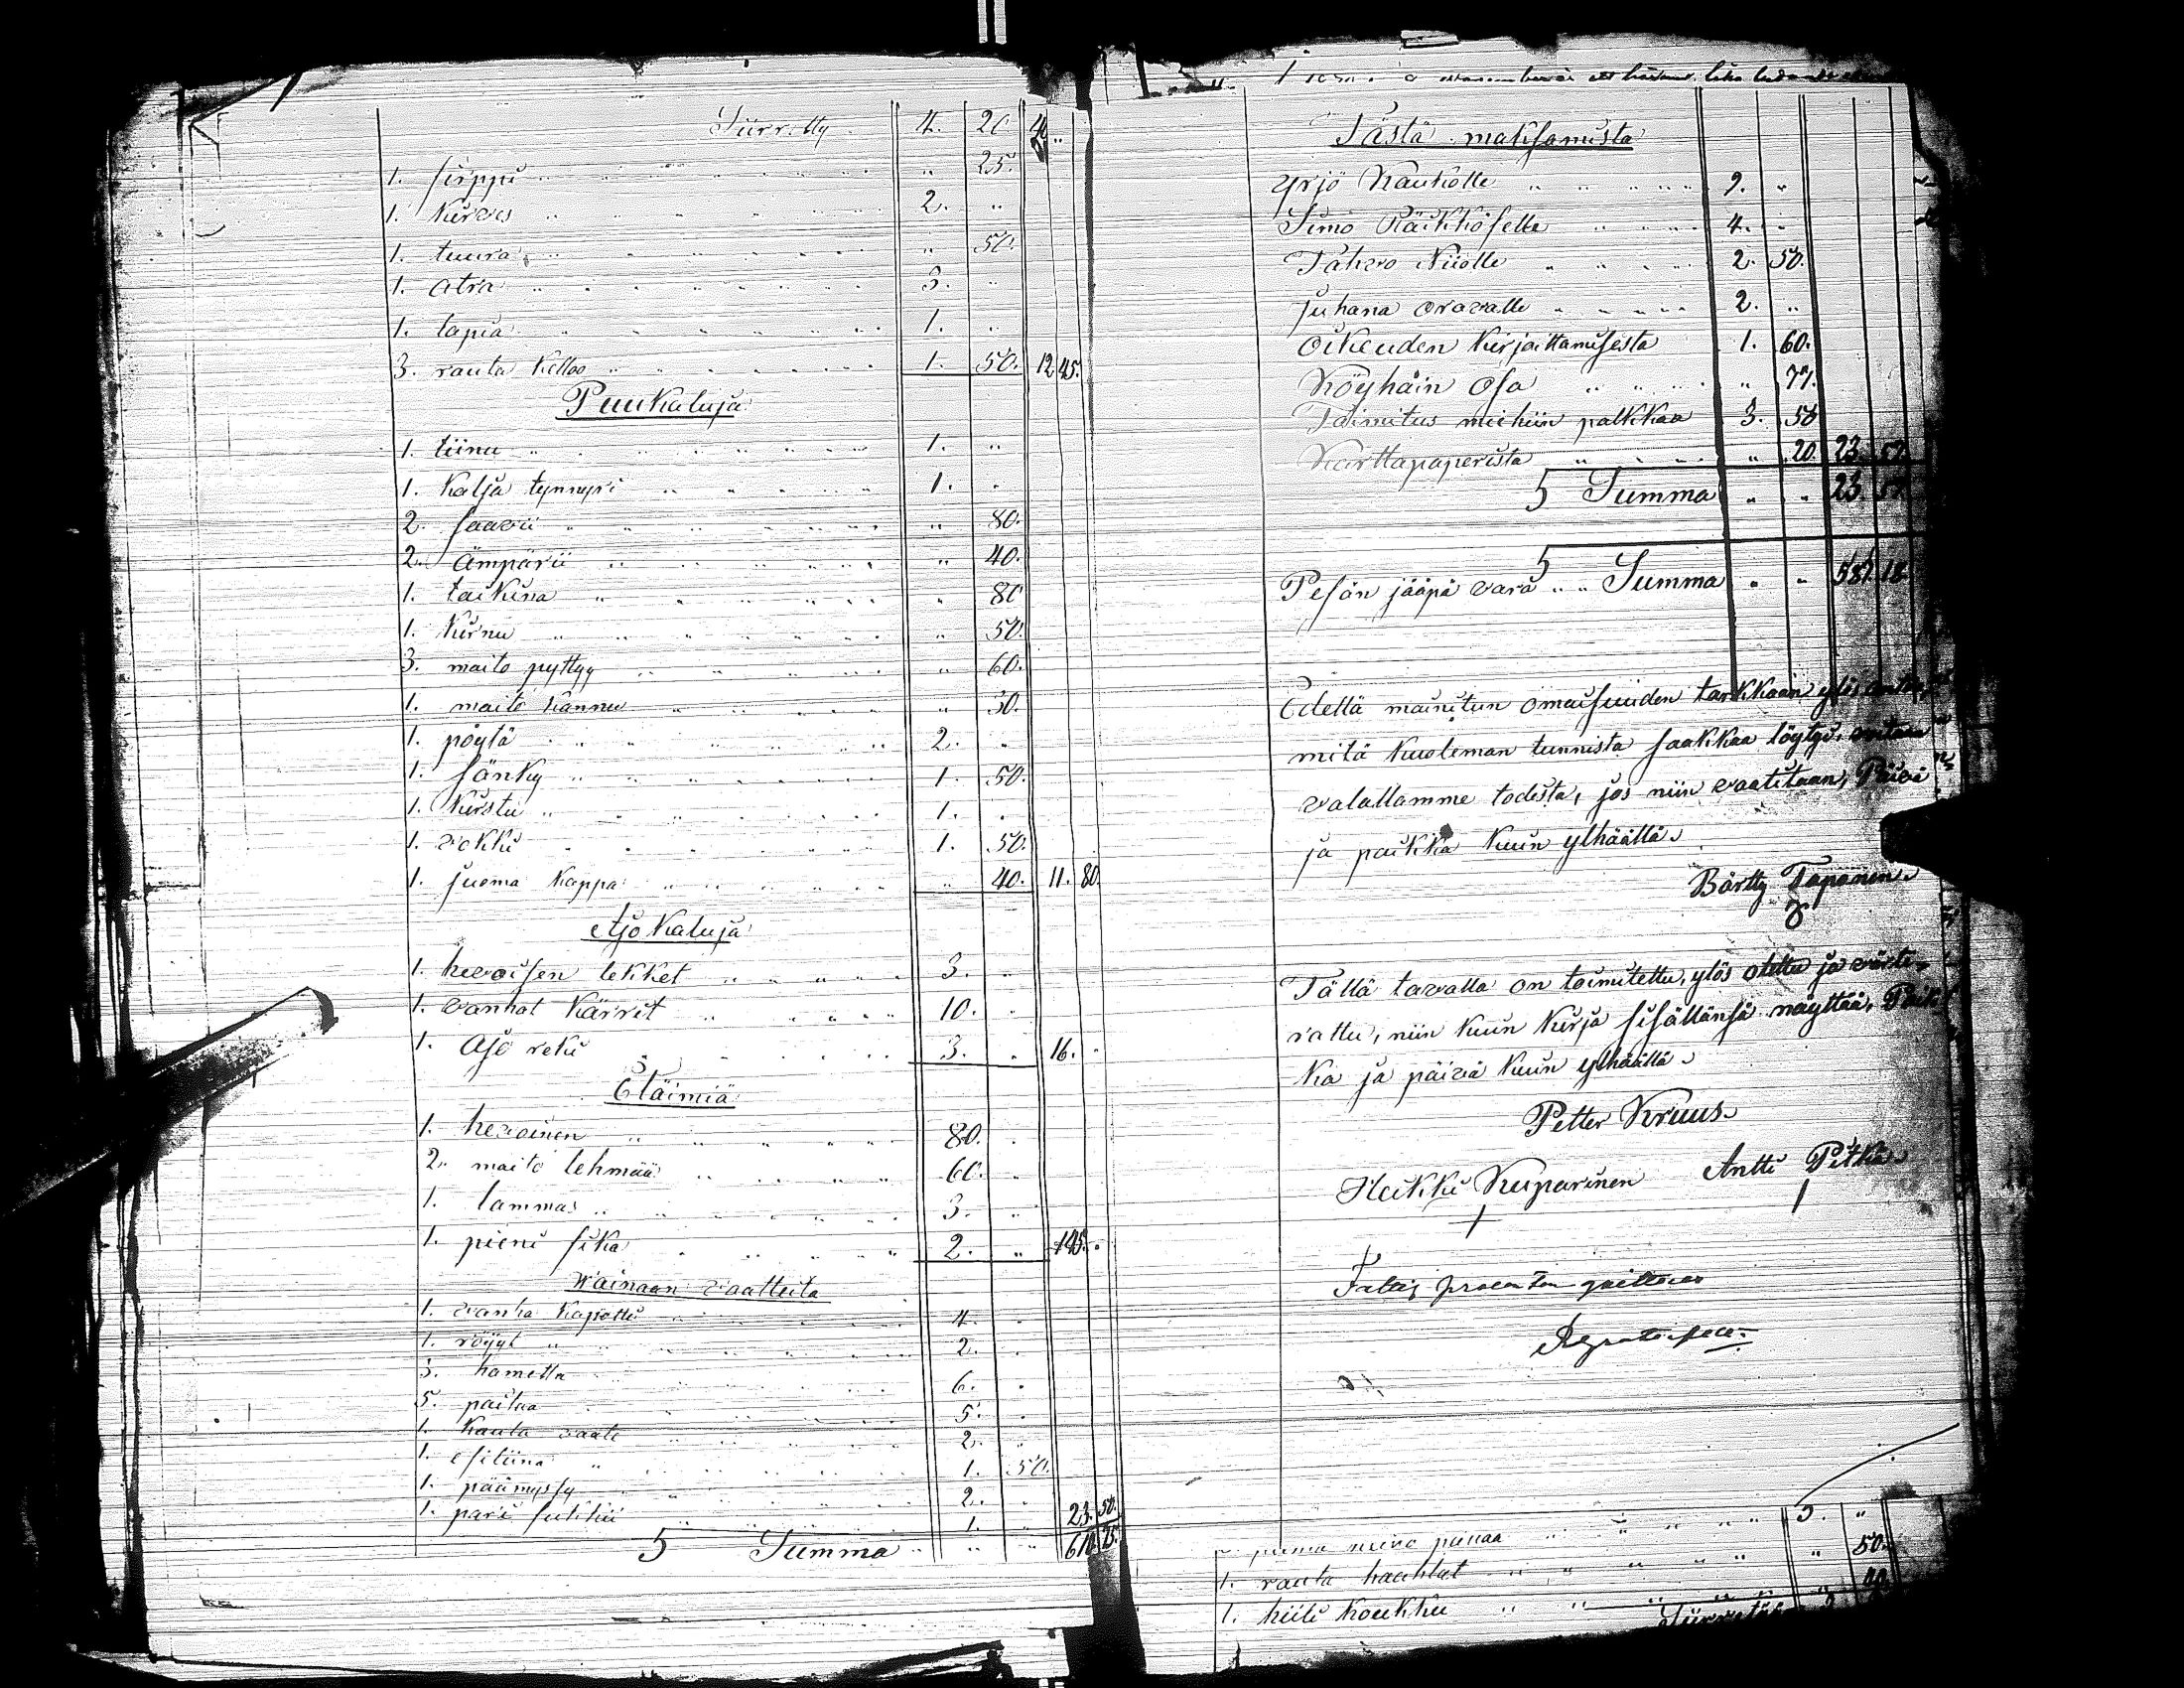 Siirretty 4. 20 40 "
1. sirppi " 25.
1. kirves 2. "
1. tuura " 50.
1. atra 3. "
1. lapia 1. "
3. rauta kelloo 1. 50. 12 45.
Puukaluja
1. tiinu 1. "
1. kalja tynnyri 1. "
2. saavii " 80.
2. ämpärii " 40.
1. taikina " 80
1. kirnu " 50.
3. maito pyttyy " 60.
1. maito kannu " 30.
1. pöytä 2. "
1. sänky 1. 50.
1. kirstu 1. "
1. rokki 1. 50.
1. juoma kappa " 40. 11. 80.
Ajo kaluja
1. hevoisen lekket 3. "
1. vanhat kärrit 10. "
1. Ajo reki 3. " 16. "
Eläimiä
1. hevoinen 80. "
2. maito lehmää 60. "
1. lammas 3. "
1. pieni sika 2. " 145. "
Wainaan vaatteita
1. vanha kapotti 4. "
1. röyyt 2. "
3. hametta 6. "
5. paitaa 5. "
1. kaula vaate 2. "
1. esiliina 1. 50.
1. päämyssy 2. "
1. pari sukkii 1. " 23. 50.
S Summa " " 610. 75.
Tästä maksamista
Yrjö Kaukolle 9. "
Simo Räikköselle 4. "
Tahvo Niiolle 2. 50.
Juhana Oravalle 2. "
Oikeuden kirjoittamisesta 1. 60.
Köyhäin Osa " 77.
Toimitus miehiin palkkaa 3. 50
Karttapaperista " 20 23. 57.
S Summa " " 23. 57.
Pesän jääpä vara " " S Summa " " 587. 18
Edellä mainitun omaisuuden tarkkaan ylös
mitä kuoleman tunnista saakkaa löytyi,
valallamme todista, jos niin vaatitaan, Päivä
ja paikka kuun ylhäällä.
Bärtty Taponen.
Tällä tavalla on toimitettu, ylös otettu ja värte-
rattu, niin kuun kirja sisällänsä näyttää, Paik-
ka ja päivä kuun ylhäällä.
Petter Kruus.
Heikki Kuparinen Antti Pitkä.
Fattig procenten
puuna 3. "
1. rauta haahlat " 50.
1. hiili koukku
Siirretty